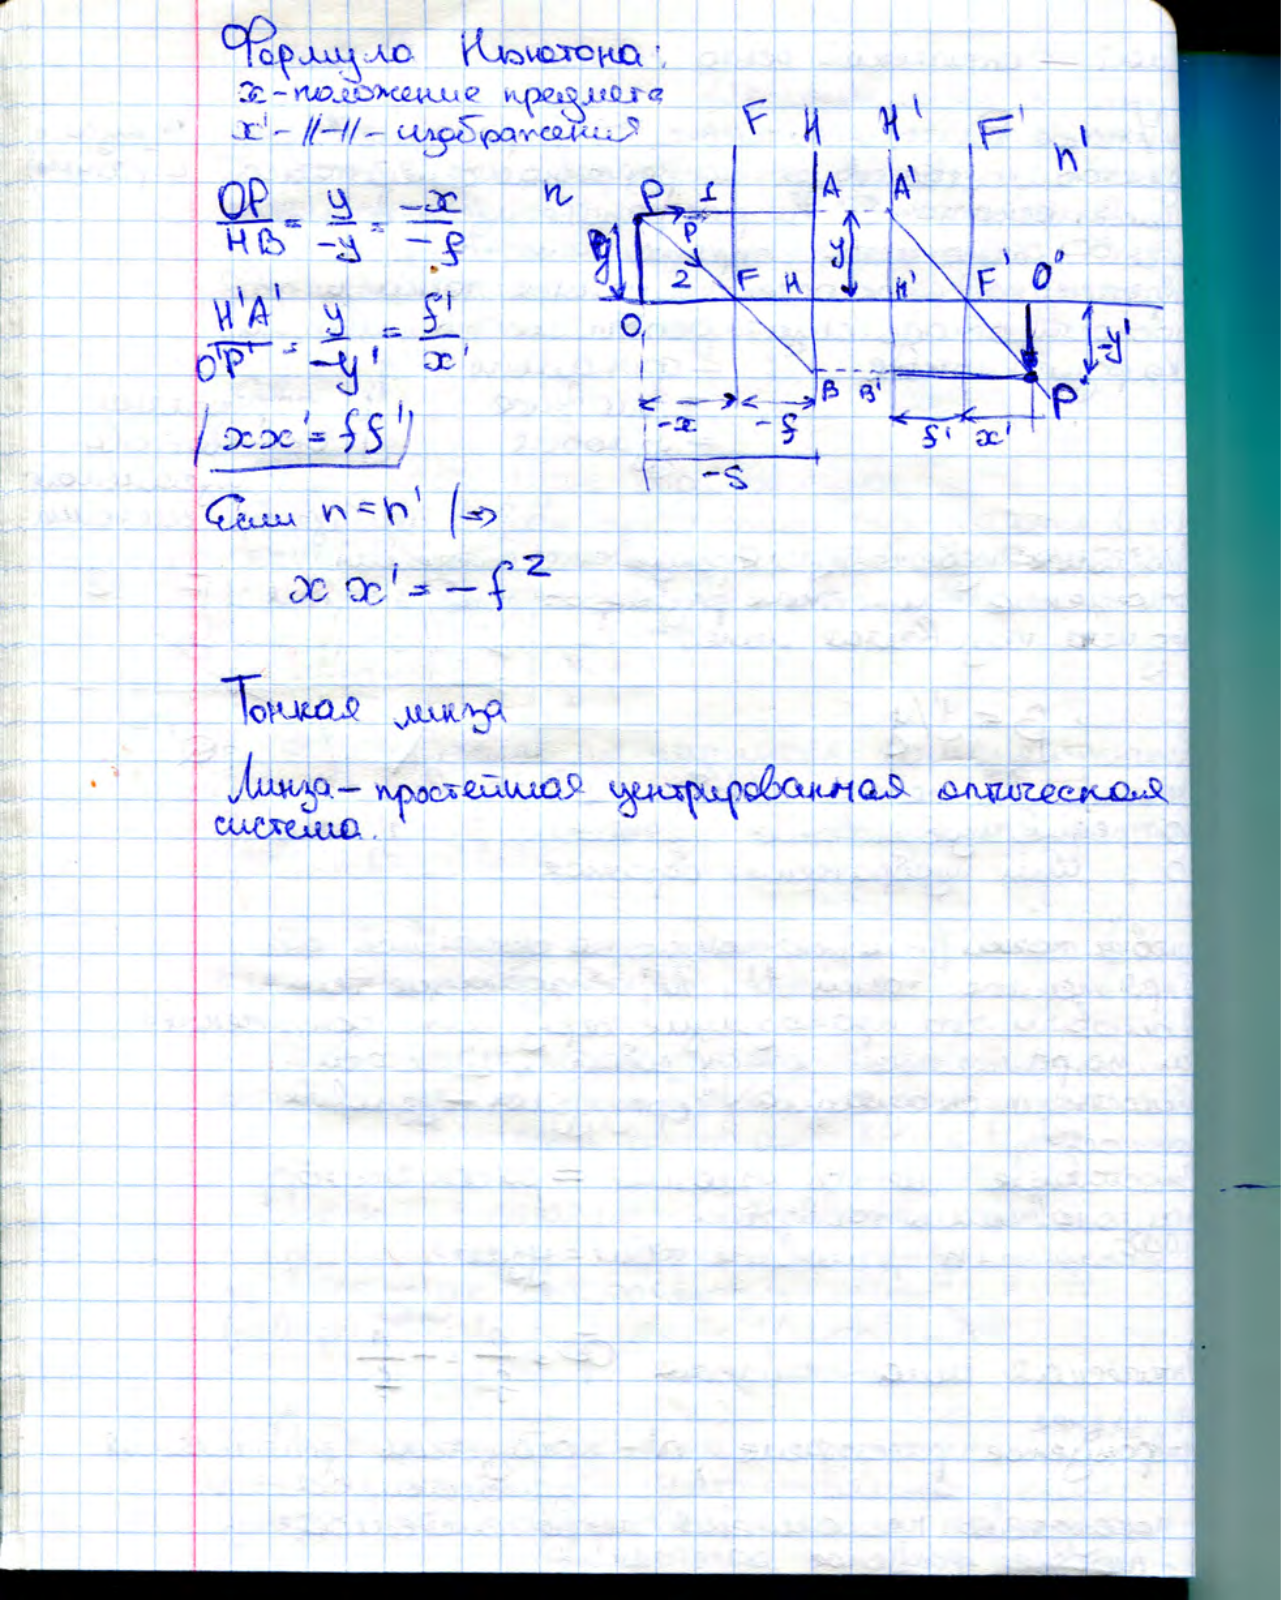 Формула Ньютона:
x - положение предмета
x' - //-//- изображения
OP/HB = y/-y = -x/-f
H'A'/O'P' = y/-y' = f'/x'
xx' = ff'
Если n = n' /⇒
x x' = - f²
F H H' F'
n n'
P 1 A A'
P
y y
2 F H H' F' O'
O
-y'
B B' P'
-x -f f' x'
-s
Тонкая линза
Линза - простейшая центрированная оптическая
система.